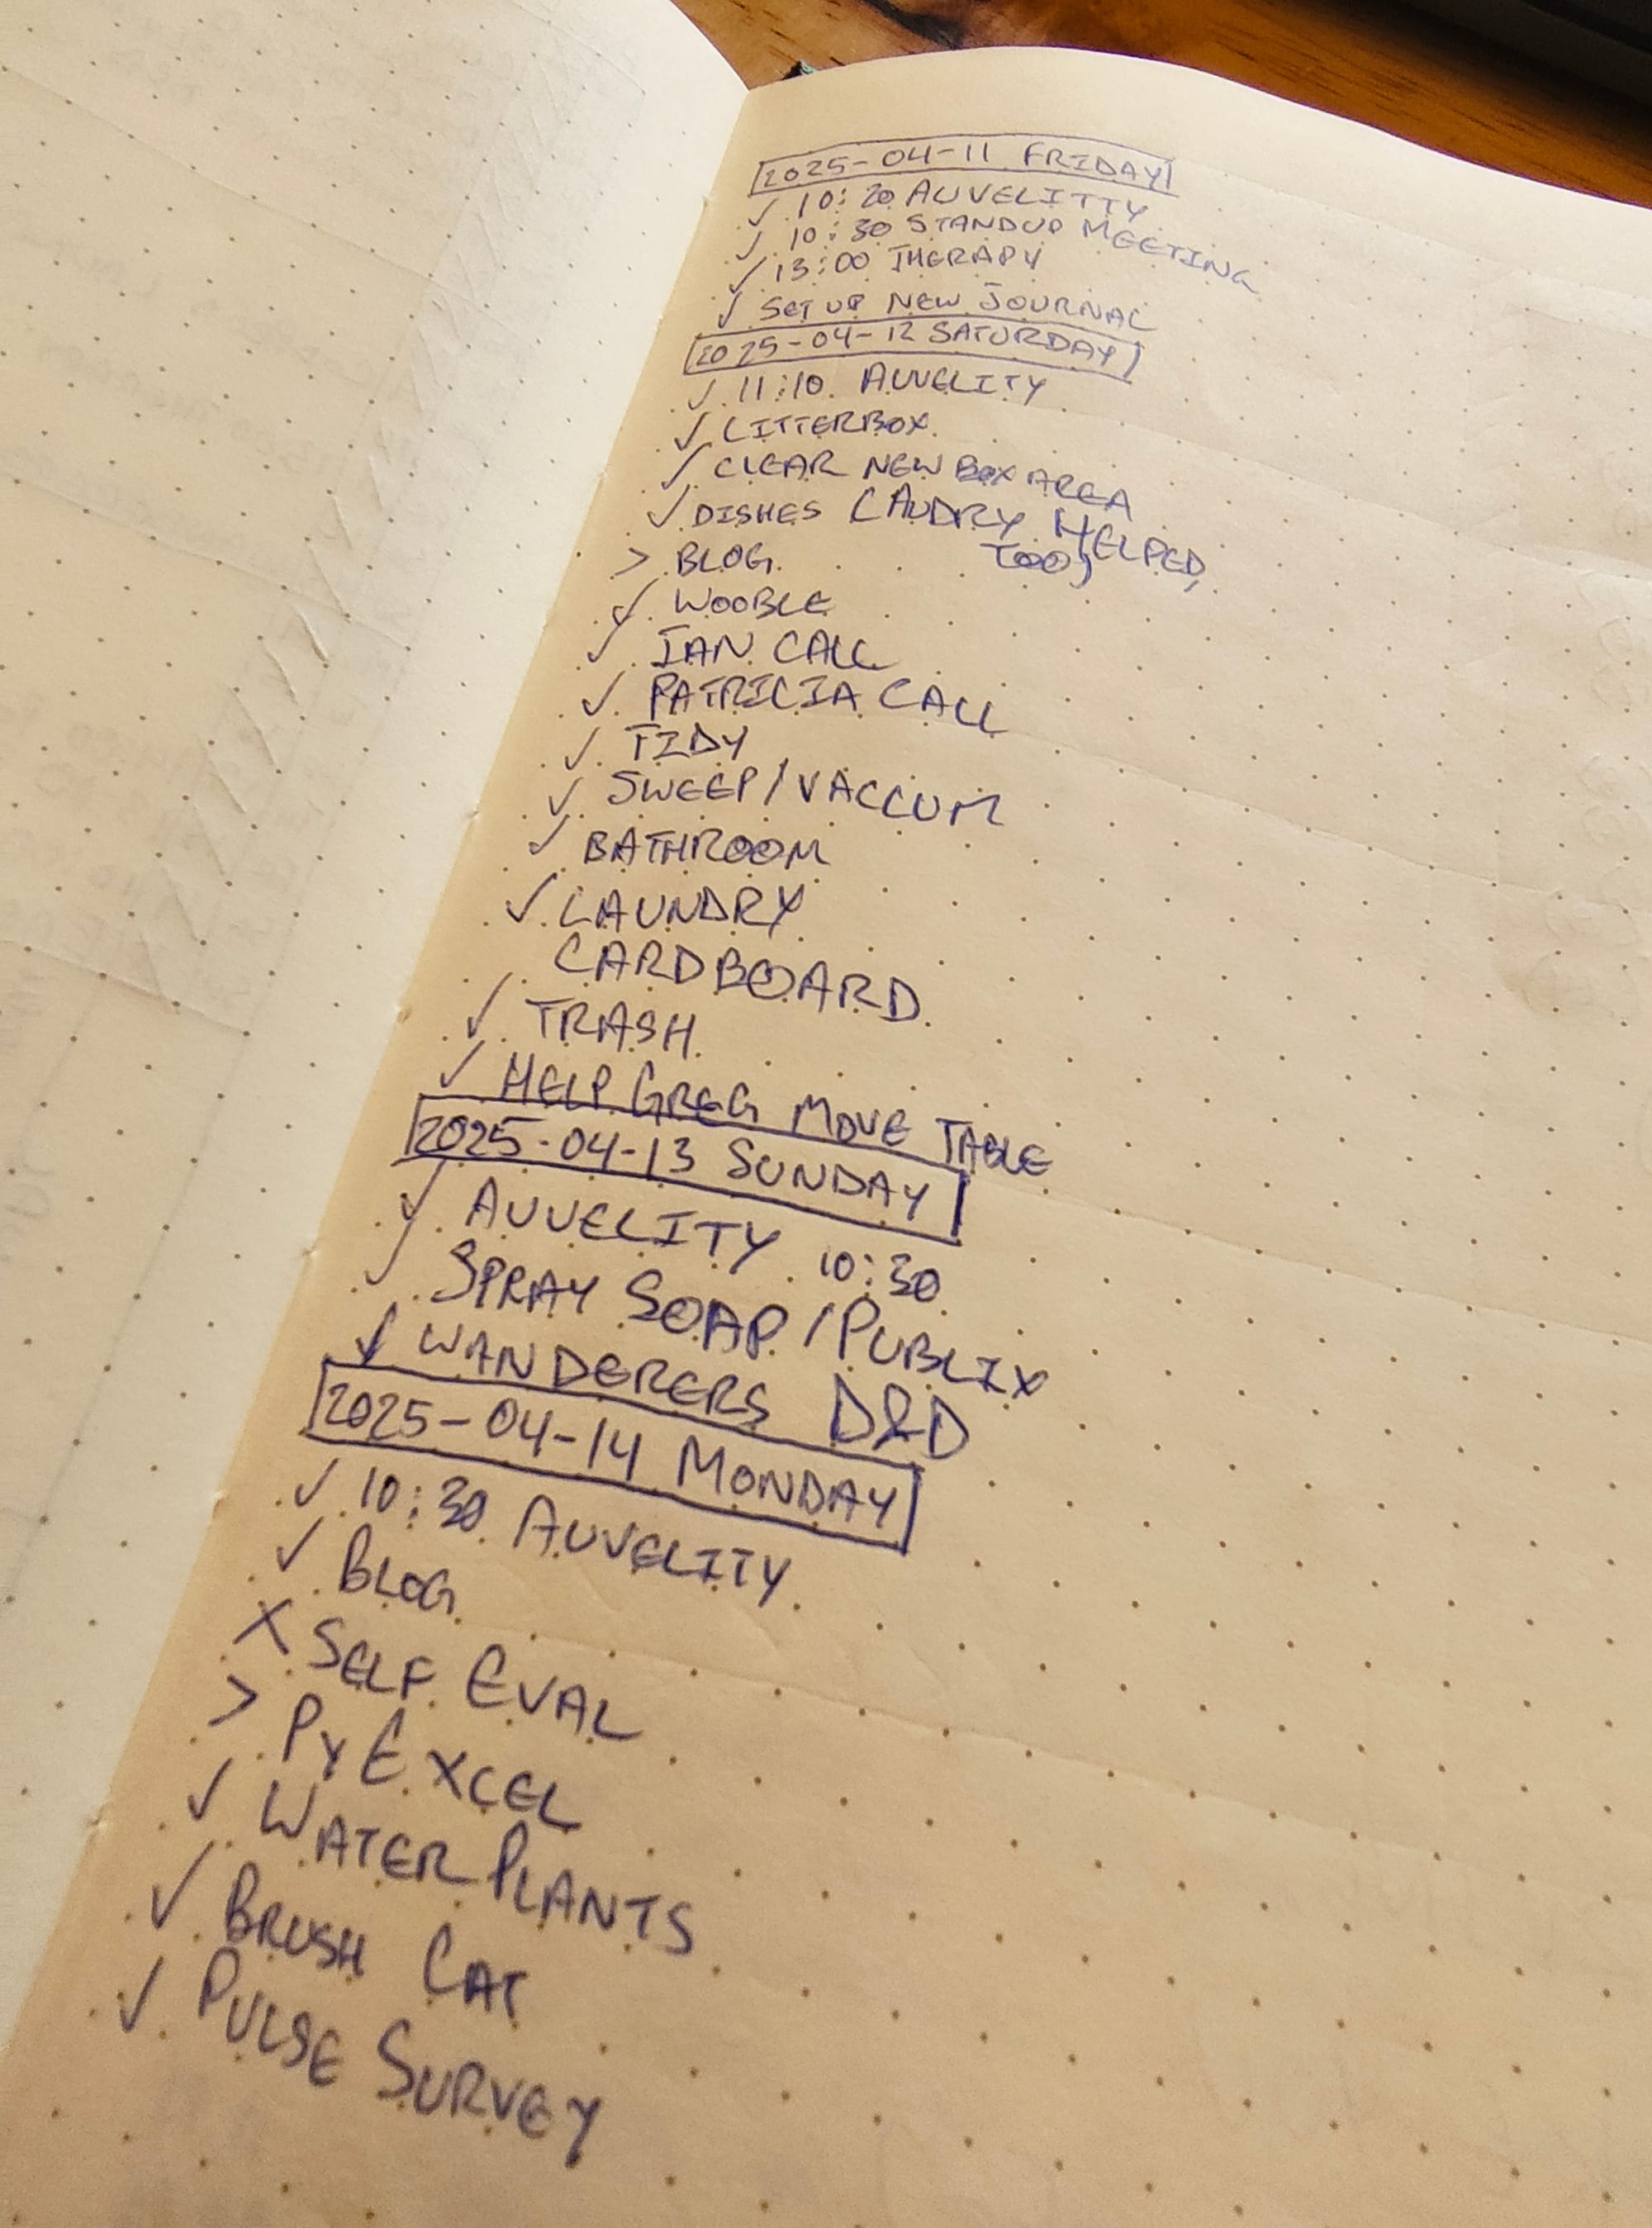 2025-04-11 FRIDAY
✓ 10:20 AUVELITTY
✓ 10:30 STANDUP MEETING
✓ 13:00 THERAPY
✓ SET UP NEW JOURNAL
2025-04-12 SATURDAY
✓ 11:10 AUVELITY
✓ LITTERBOX
✓ CLEAR NEW BOX AREA
✓ DISHES LAUDRY HELPED,
TOO;
> BLOG
✓ WOOBLE
✓ IAN CALL
✓ PATRICIA CALL
✓ TIDY
✓ SWEEP/VACCUM
✓ BATHROOM
✓ LAUNDRY
CARDBOARD
✓ TRASH
✓ HELP GREG MOVE TABLE
2025-04-13 SUNDAY
✓ AUVELITY 10:30
✓ SPRAY SOAP/PUBLIX
✓ WANDERERS D&D
2025-04-14 MONDAY
✓ 10:30 AUVELITY
✓ BLOG
X SELF EVAL
> PYEXCEL
✓ WATER PLANTS
✓ BRUSH CAT
✓ PULSE SURVEY